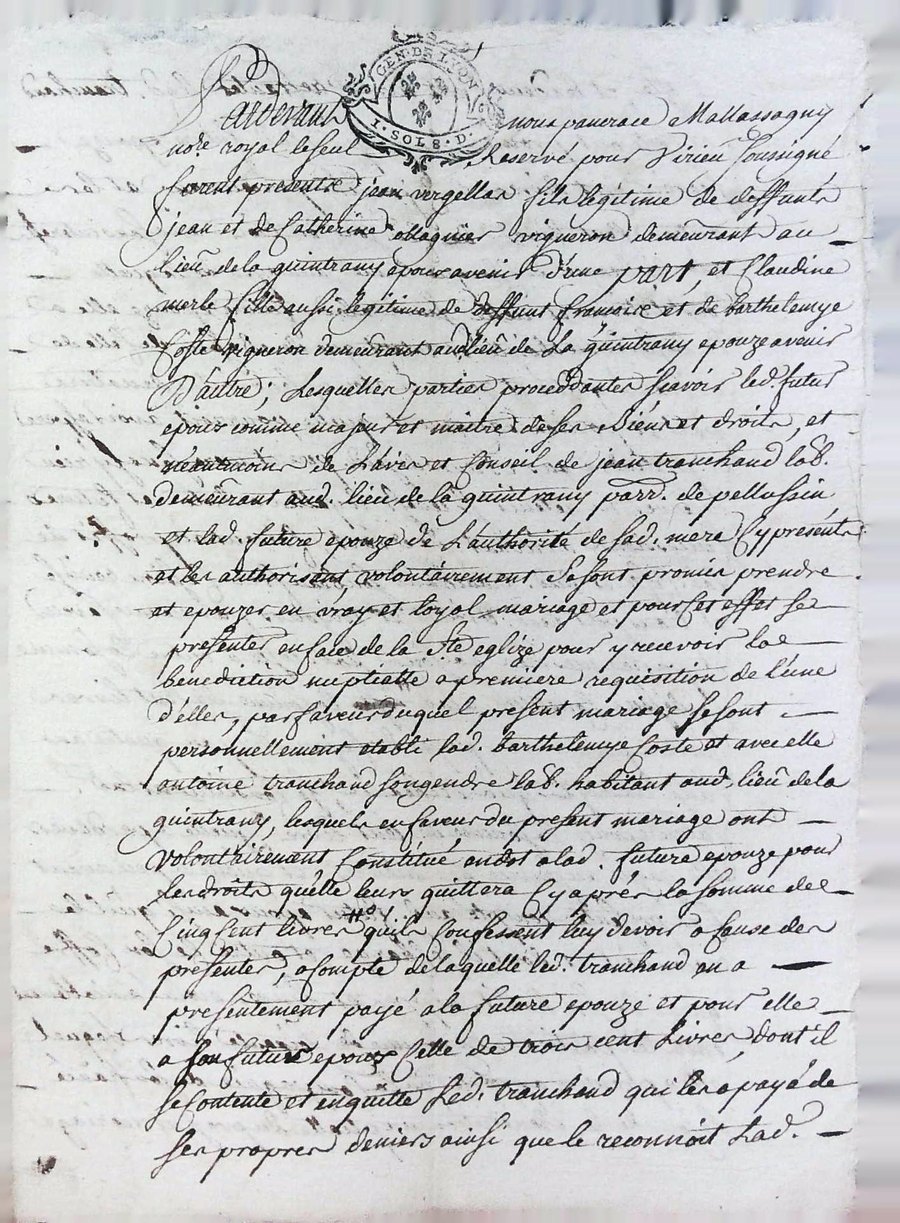 GEN. DE LYON
I. SOL 8. D.
Pardevant nous panerace Mallassagny
no.re royal le seul Reservé pour Virieu soussigné
furent presents jean vergellas fils legitime de deffunts
jean et de Catherine ollagnier vigneron demeurant au
lieu de la quintrany epoux avenir d'une part, et Claudine
merle fille aussi legitime de deffunt francoise et de barthelemye
Coste vigneron demeurant audlieu de La quintrany epouze avenir
D'autre; Lesquelles parties proceddantes scavoir led. futur
epoux comme majeur et maitre de ses Biens et droits, et
neantmoins de L'avis et Conseil de jean tranchand lab.
demeurant aud. lieu de la quintrany parr. de pellussin
et lad. future epouze de L'authorité de sad. mere Cy presente
et les authorisant, volontairement se sont promis prendre
et epouzer en vray et loyal mariage et pour Cet effet se
presenter en face de la Ste eglize pour y recevoir la
benediction nuptialle a premiere requisition de L'une
d'elles, par faveur duquel present mariage se sont
personnellement etabli lad. barthelemye Coste et avec elle
antoine tranchand son gendre lab. habitant aud. lieu de la
quintrany, lesquels en faveur du present mariage ont
volontairement Constitué en dot a lad. future epouze pour
les droits qu'elle leurs quittera Cy aprés la somme de
Cinq Cent livres qu'ils Confessent luy devoir a Cause des
presentes, a Compte de laquelle led. tranchand en a
presentement payé a la future epouze et pour elle
a son futur epoux Celle de trois cent Livres, dont il
se Contente et en quitte Led. tranchand qui les a payé de
ses propres deniers ainsi que le reconnoit Lad.